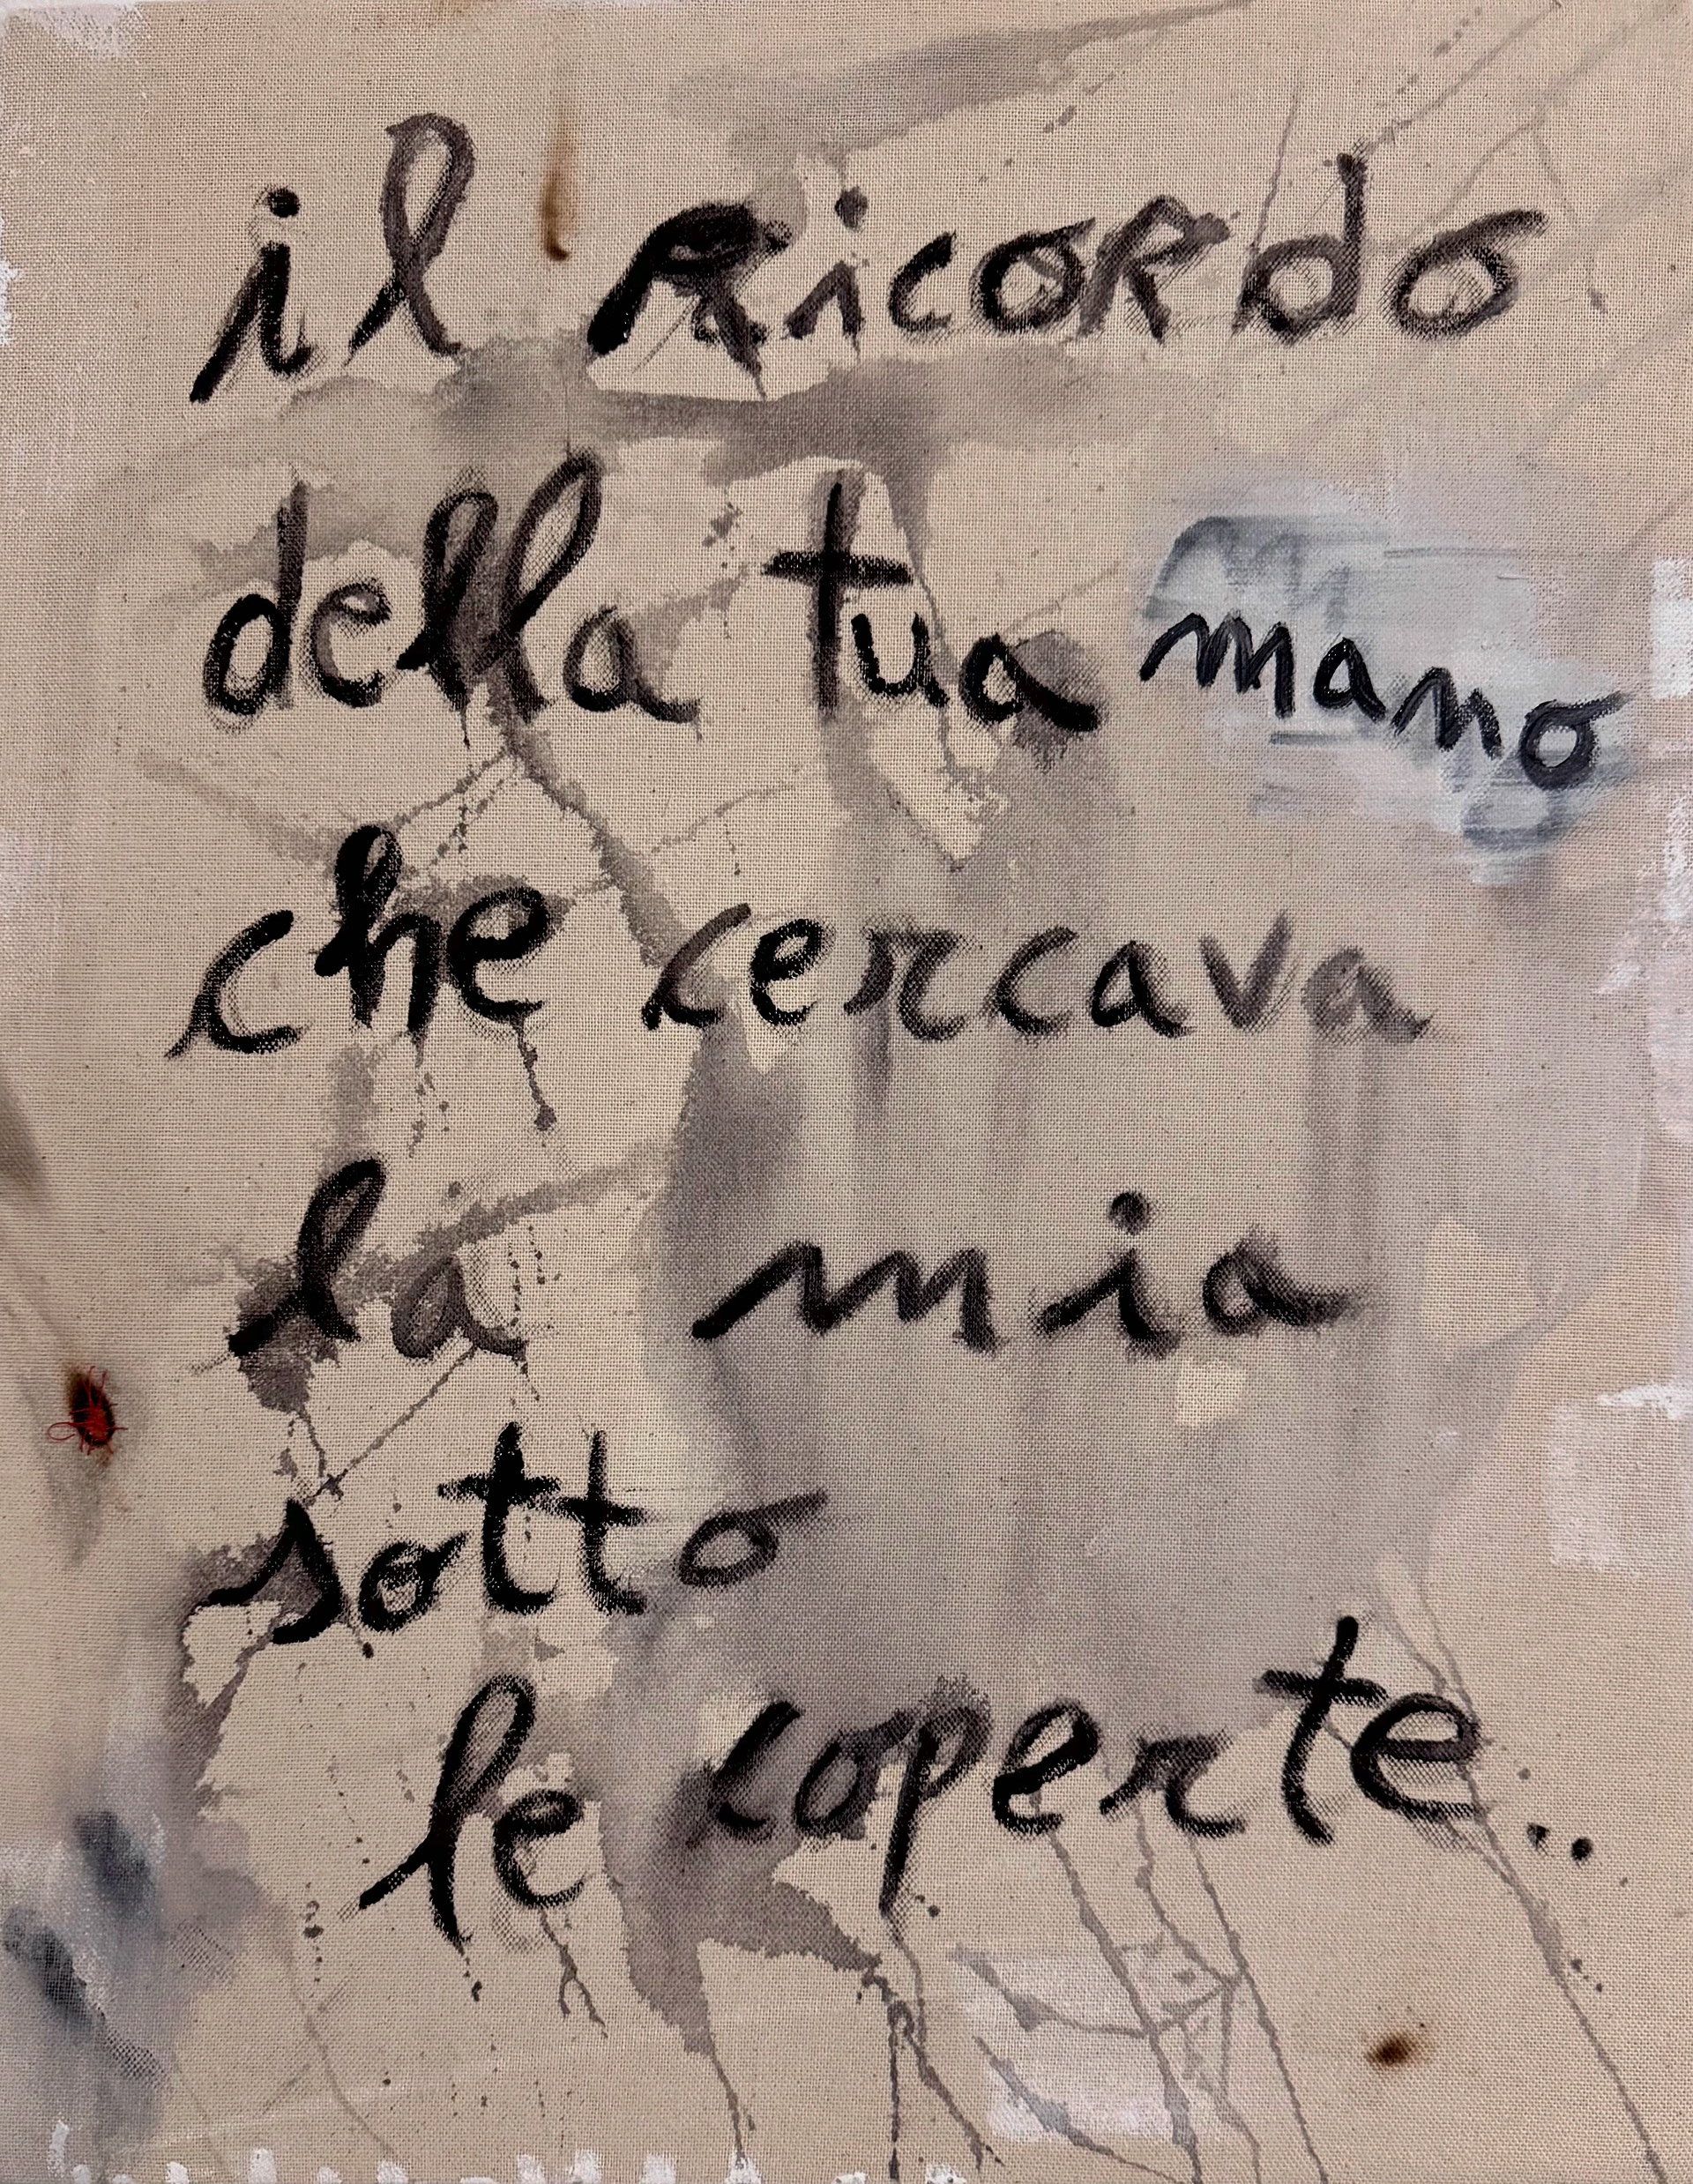 il ricordo
della tua mano
che cercava
la mia
sotto
le coperte..